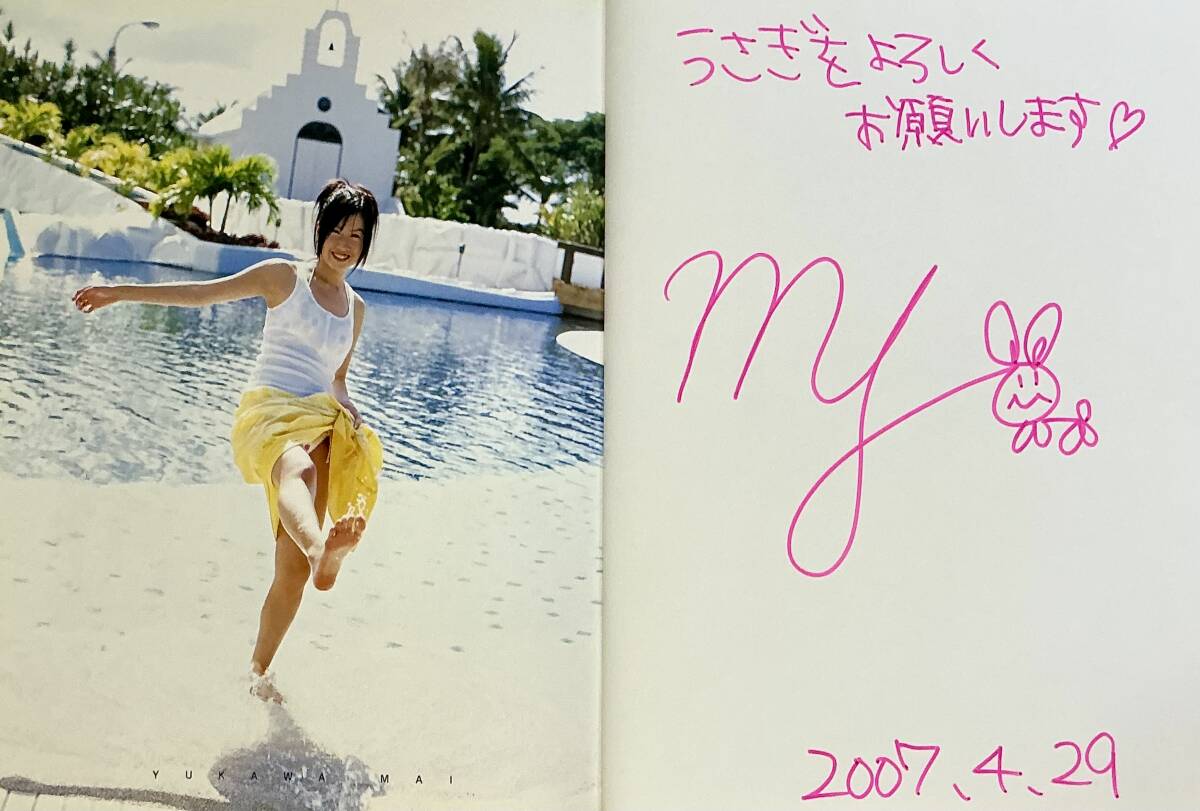 YUKAWA MAI
うさぎをよろしく
お願いします♡
my
2007.4.29